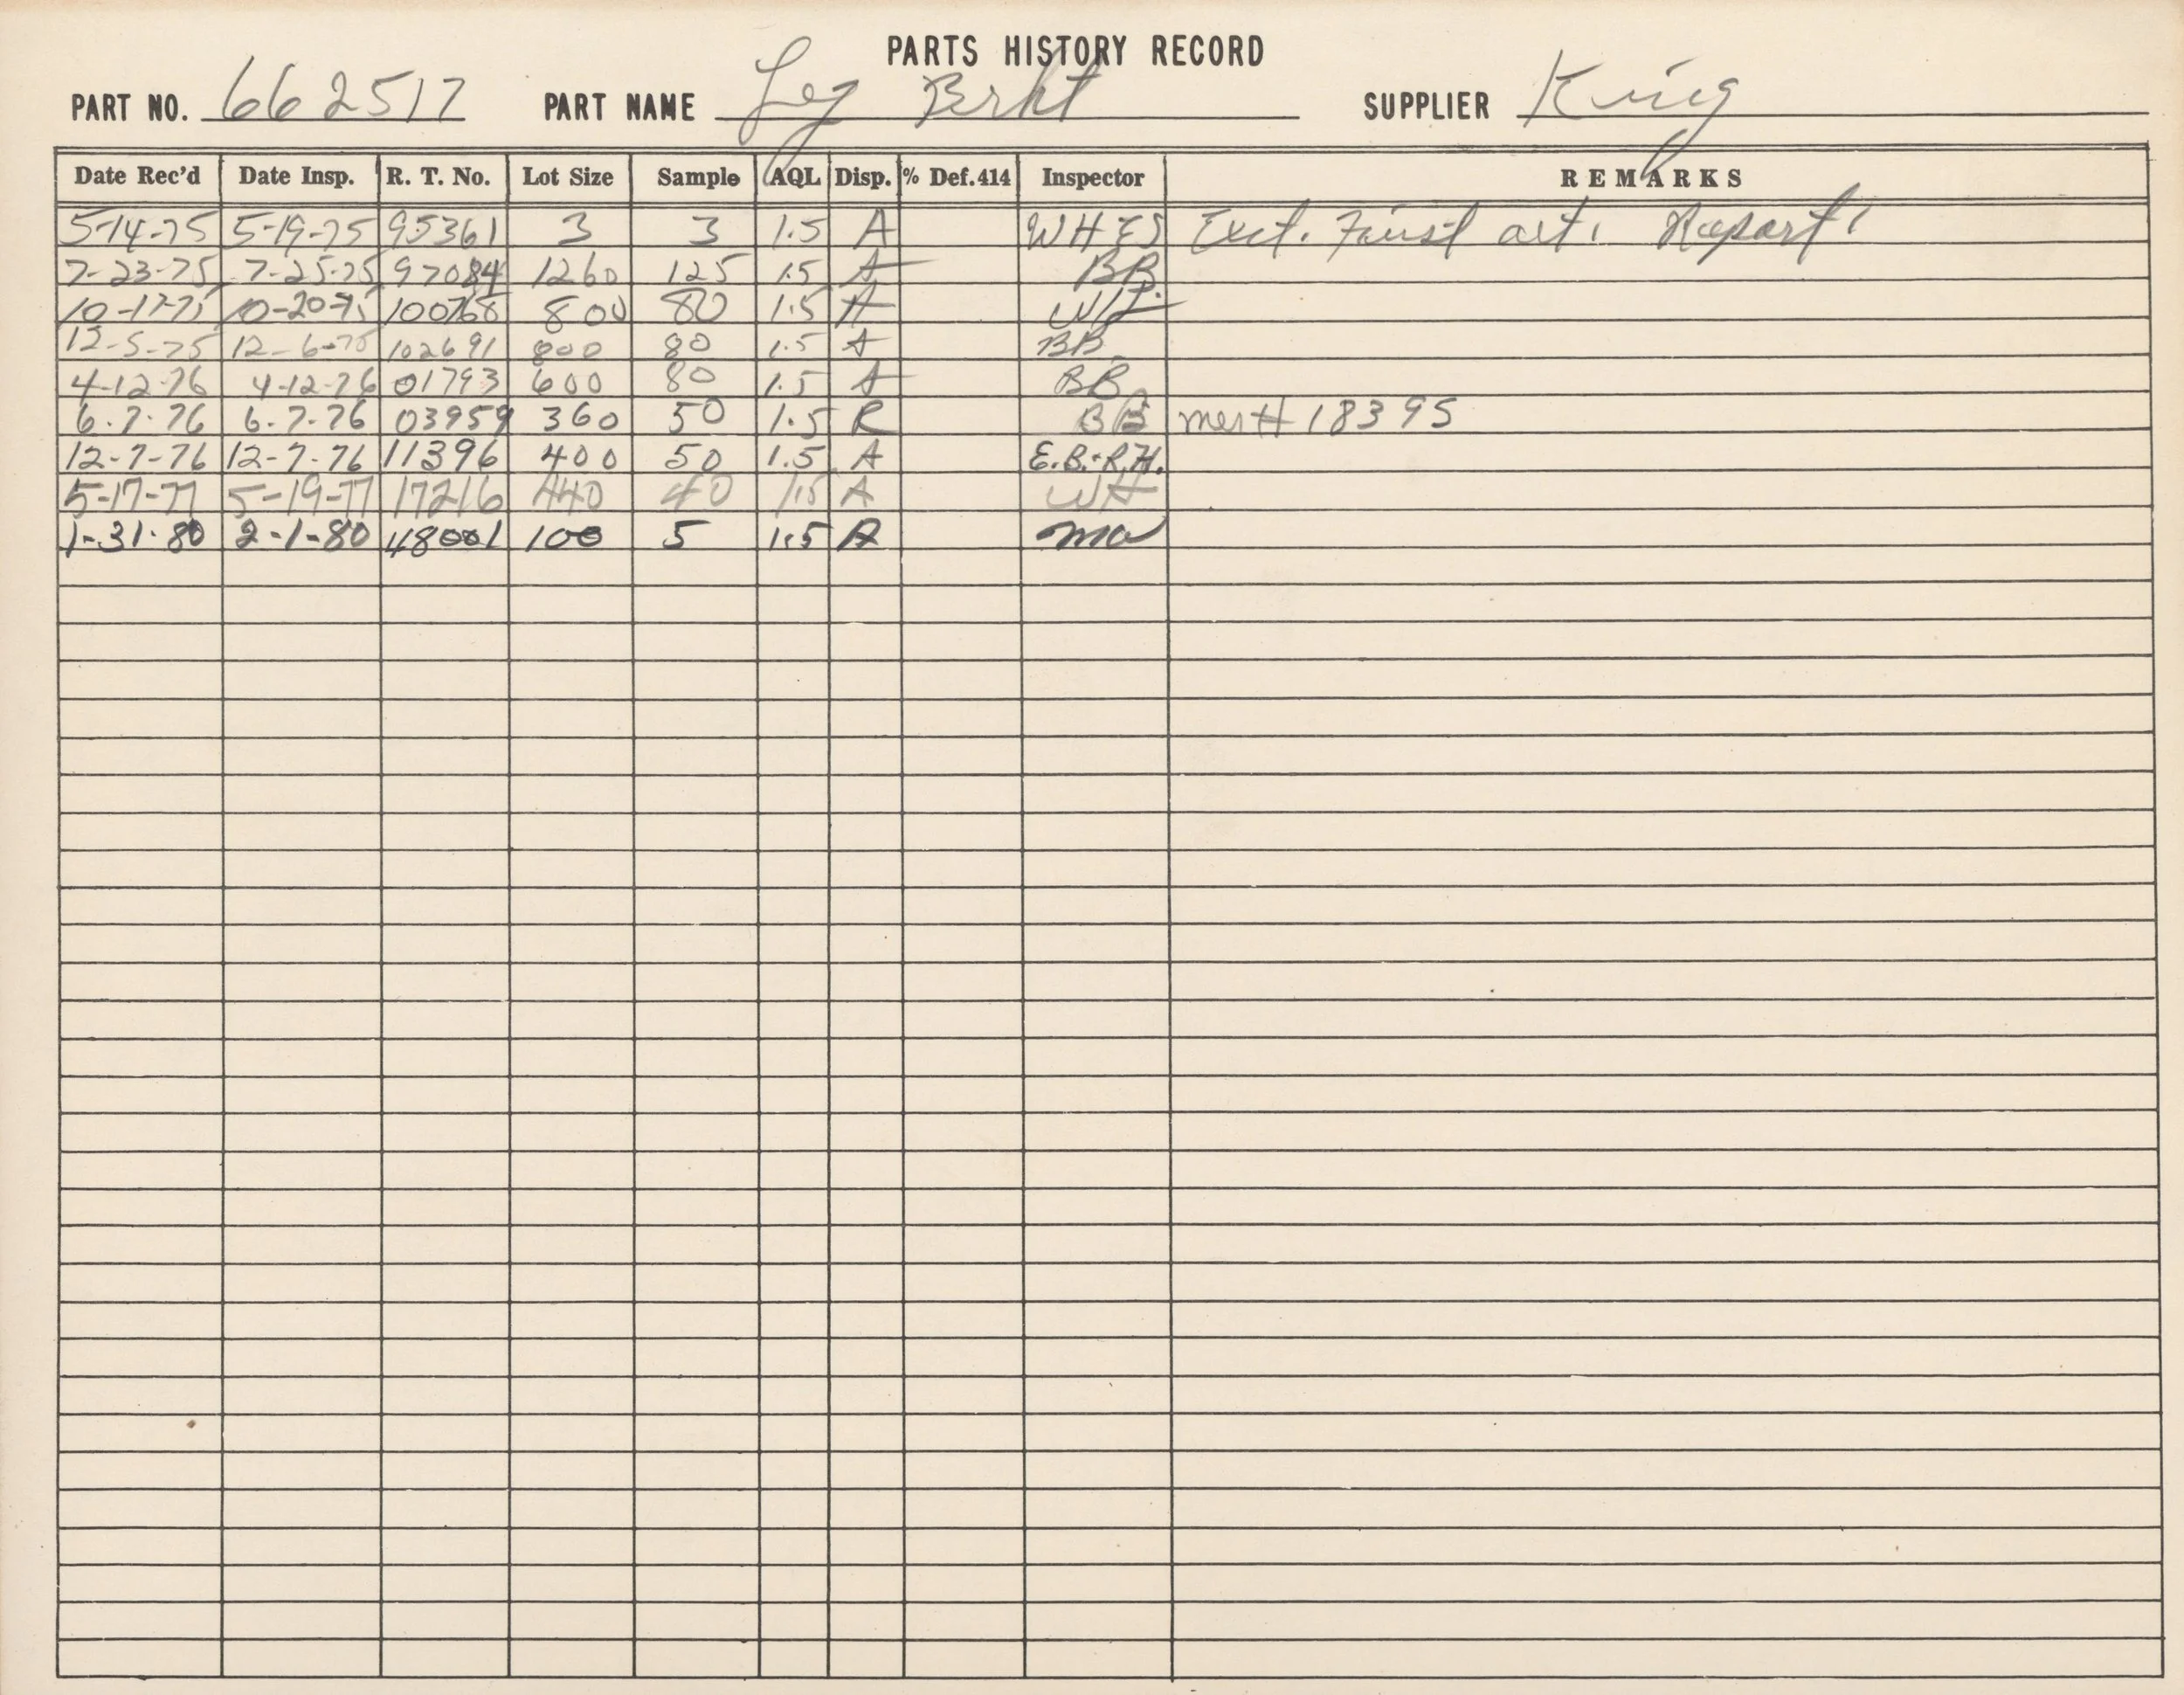 PARTS HISTORY RECORD
PART NO. 662517 PART NAME Leg Brkt SUPPLIER King
Date Rec'd Date Insp. R. T. No. Lot Size Sample AQL Disp. % Def.414 Inspector REMARKS
5-14-75 5-19-75 95361 3 3 1.5 A WH ES Ext. First art. Report.
7-23-75 7-25-75 97084 1260 125 1.5 A BB.
10-17-75 10-20-75 100768 800 80 1.5 A
12-5-75 12-6-75 102691 800 80 1.5 A BB
4-12-76 4-12-76 01793 600 80 1.5 A BB
6.7.76 6.7.76 03959 360 50 1.5 R BB 18395
12-7-76 12-7-76 11396 400 50 1.5 A E.B.-R.H.
5-17-77 5-19-77 17216 440 40 1.5 A WH
1-31-80 2-1-80 48001 100 5 1.5 A ma